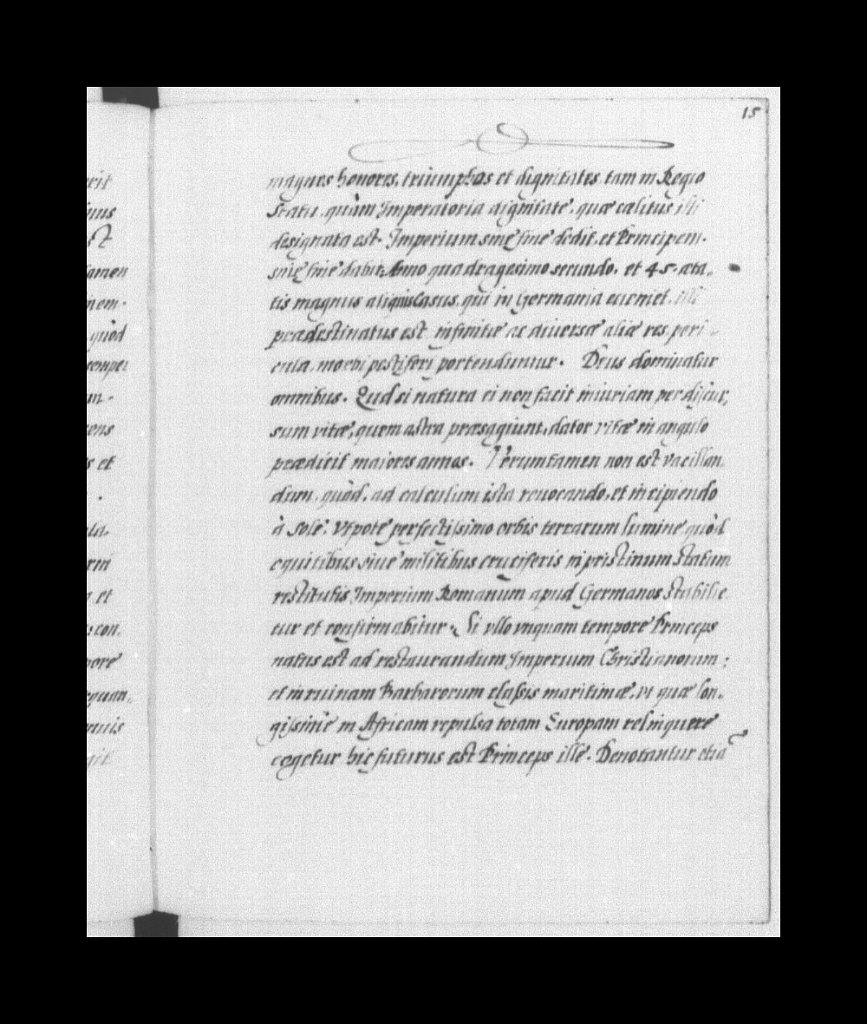 15
magnos honores, triumphos et dignitates tam in Regio
statu, quàm Imperatoria dignitate, quæ cælitus illi
designata est. Imperium sine fine dedit, et Principem.
sine fine dabit Anno quadragesimo secundo, et 45. æta,
tis magnus aliquis Casus, qui in Germania eueniet, illi
prædestinatus est infinitæ ac diuersæ aliæ res peri-
cula, morbi pestiferi portenduntur. Deus dominatur
omnibus. Qud si natura ei non facit iniuriam per discur,
sum vitæ, quem astra præsagiunt, dator vitæ in angulo
prædicit maiores annos. Veruntamen non est vacillan
dum, quòd, ad calculum ista reuocando, et incipiendo
à Sole, vt poté perfectissimo orbis terrarum lumine quòd
equitibus siue militibus cruciferis in pristinum statum
restitutis Imperium Romanum apud Germanos stabilie
tur et confirmabitur. Si vllo vnquam tempore Princeps
natus est ad restaurandum Imperium Christianorum;
et in ruinam Barbarorum classis maritimæ, vt quæ lon,
gissime in Africam repulsa totam Europam relinquere
cogetur hic futurus est Princeps ille. Denotantur etiã
erit
amen
nem.
quòd
semper
ens
s et
ta,
a et
con,
pore
equan,